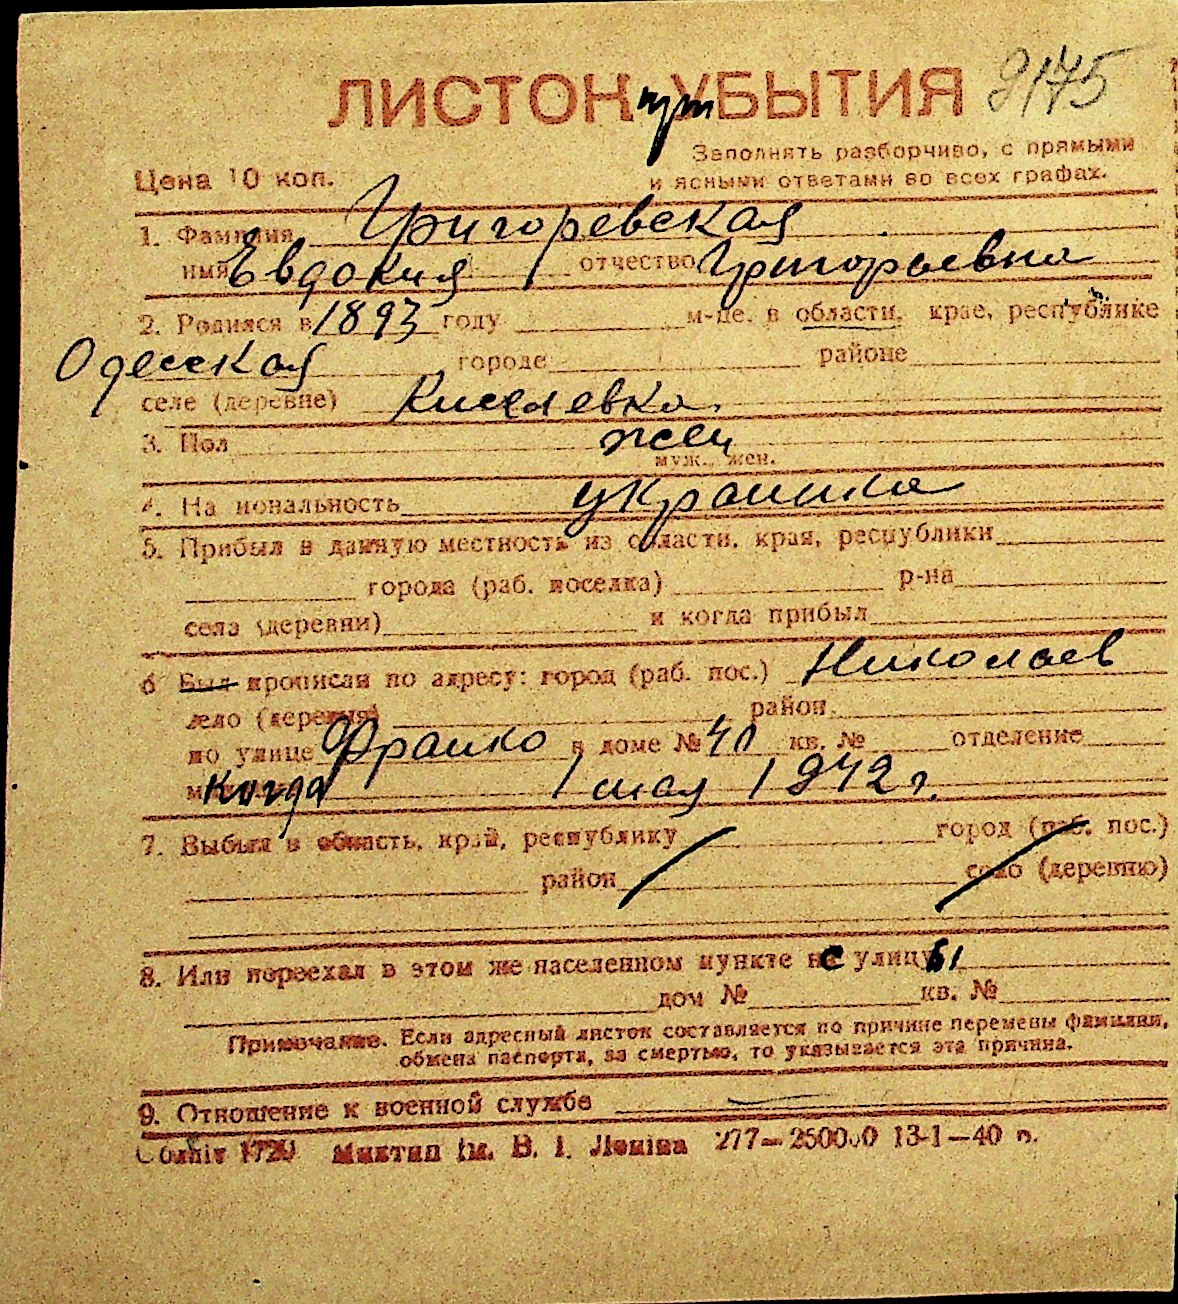 ЛИСТОК УБЫТИЯ 9175
при
Цена 10 коп. Заполнять разборчиво, с прямыми
и ясными ответами во всех графах.
1. Фамилия Григоревская
имя Евдокия отчество Григорьевна
2. Родился в 1893 году м-це. в области, крае, республике
Одесская городе районе
селе (деревне) Киселевка.
3. Пол жен
муж., жен.
4. Национальность украинка
5. Прибыл в данную местность из области, края, республики
города (раб. поселка) р-на
села (деревни) и когда прибыл
6 Был прописан по адресу: город (раб. пос.) Николаев
село (деревня) район
по улице Франко в доме № 40 кв. № отделение
когда 1 мая 1942 г.
7. Выбыл в область, край, республику город (раб. пос.)
район село (деревню)
8. Или переехал в этом же населенном пункте с улицы
дом № кв. №
Примечание. Если адресный листок составляется по причине перемены фамилии,
обмена паспорта, за смертью, то указывается эта причина.
9. Отношение к военной службе
Облліт 1720 Миктип ім. В. І. Леніна 277—250000 13-1—40 р.